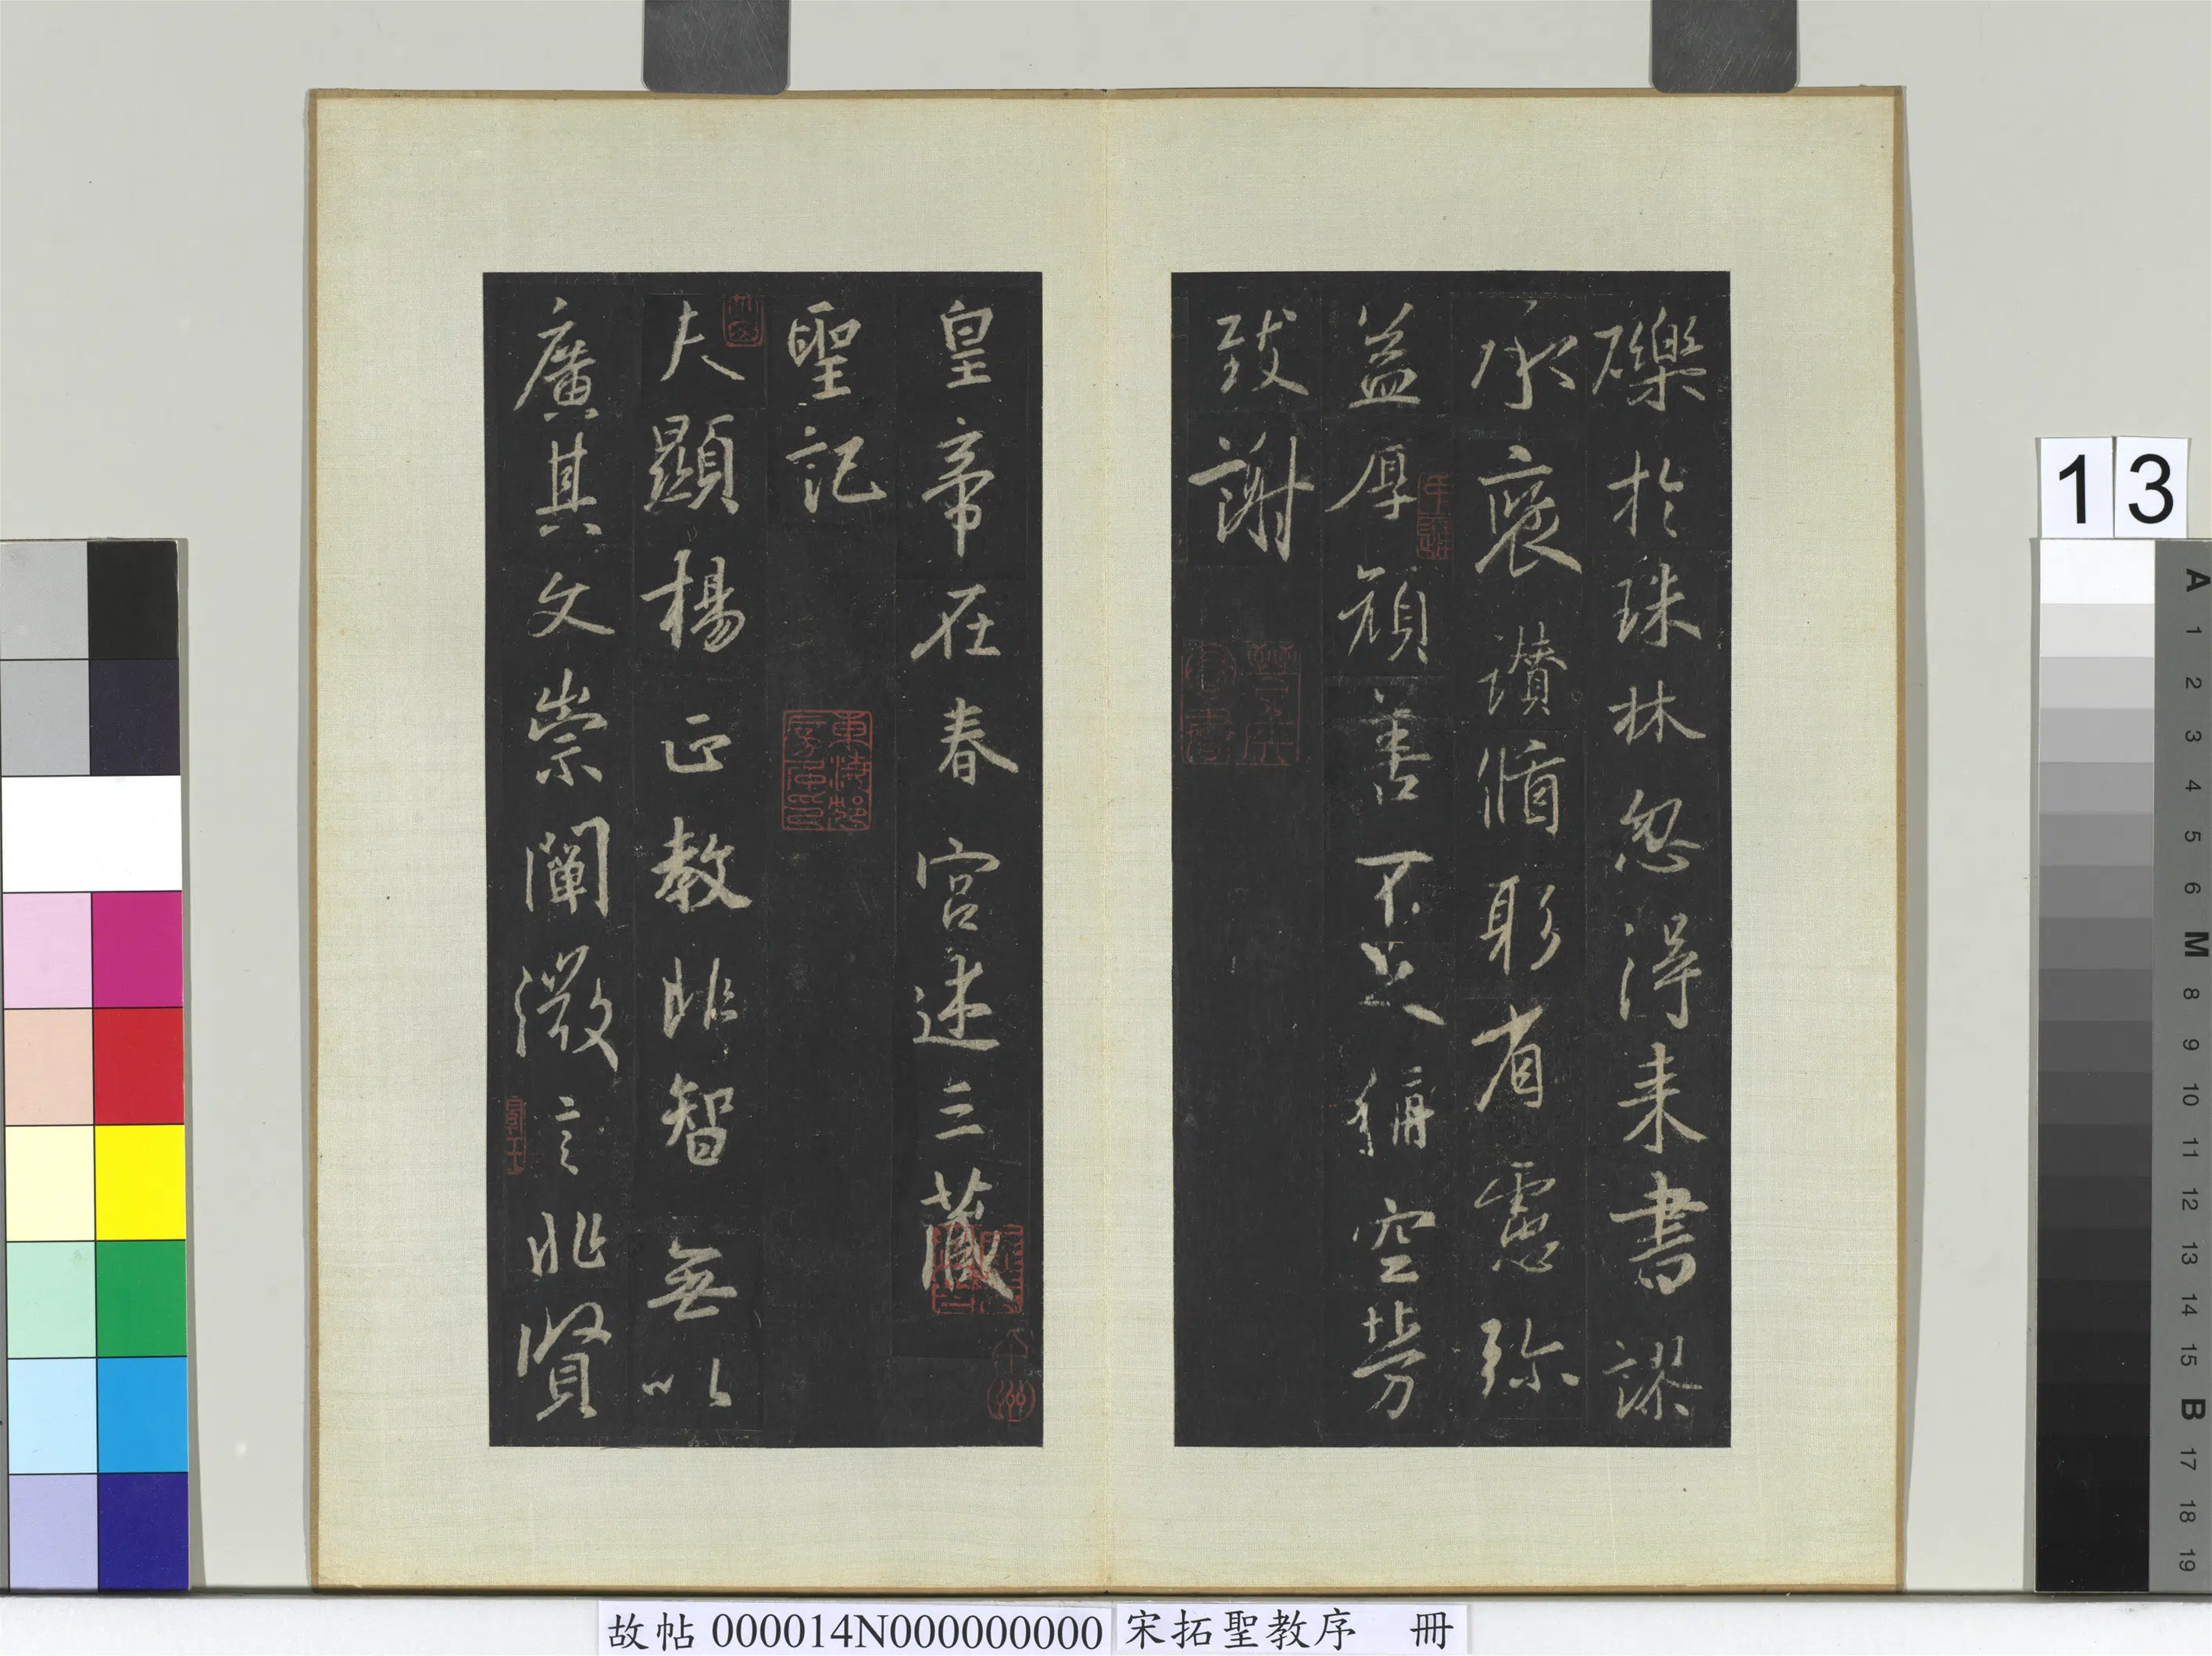 礫於珠林忽得来書謬
承褒讃循躬省慮弥
益厚顔善不足稱空勞
致謝
皇帝在春宮述三藏
聖記
夫顯楊正教非智無以
廣其文崇闡微言非賢
13
A
1
2
3
4
5
6
M
8
9
10
11
12
13
14
15
B
17
18
19
故帖 000014N000000000
宋拓聖教序 冊